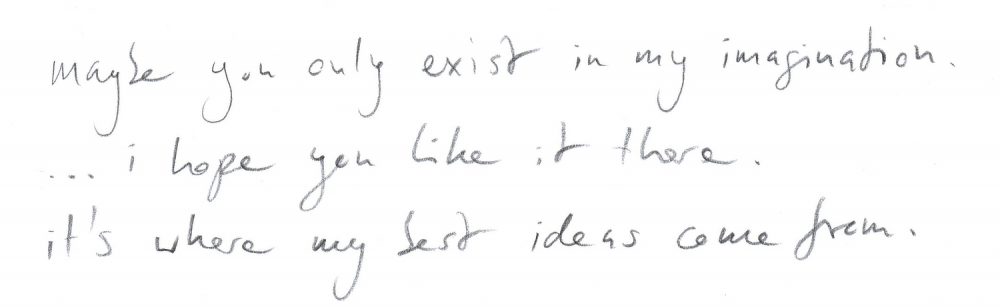 maybe you only exist in my imagination.
... i hope you like it there.
it's where my best ideas come from.